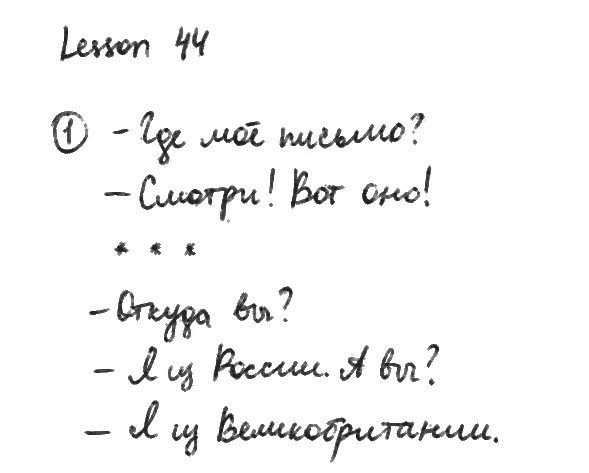 Lesson 44
① - Где моё письмо?
- Смотри! Вот оно!
* * *
- Откуда вы?
- Я из России. А вы?
- Я из Великобритании.